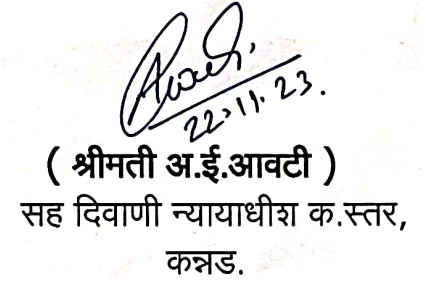 22.11.23.
( श्रीमती अ.ई.आवटी )
सह दिवाणी न्यायाधीश क.स्तर,
कन्नड.